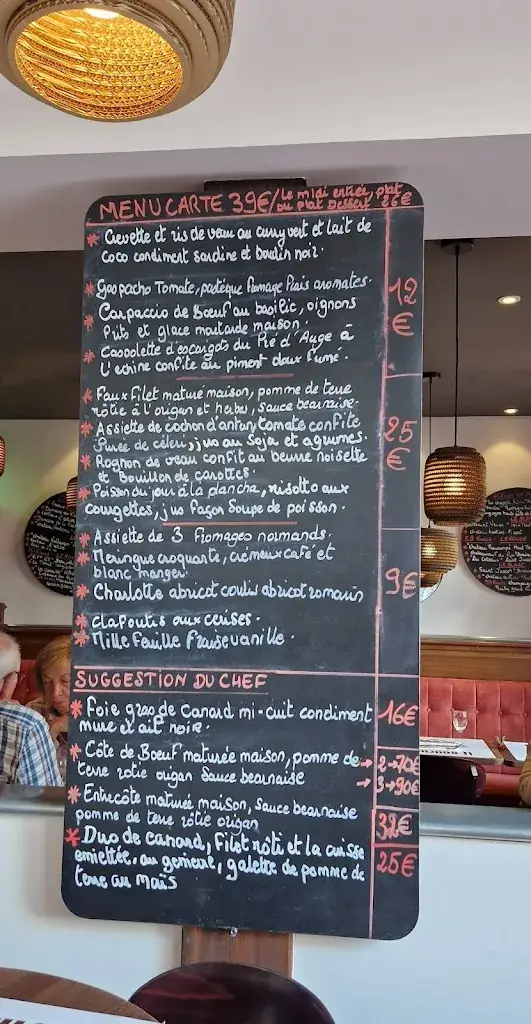 MENU CARTE 39€/ Le midi entrée, plat
ou plat Dessert 26€
* Crevette et ris de veau au curry vert et lait de
coco condiment sardine et boudin noir.
* Gaspacho Tomate, pastèque fromage frais aromates.
* Carpaccio de Bœuf au basilic, oignons
frits et glace moutarde maison.
* Cassolette d'escargots du Pré d'Auge à
l'echine confite au piment doux fumé.
12
€
* Faux Filet maturé maison, pomme de terre
rôtie à l'origan et herbes, sauce bearnaise.
* Assiette de cochon d'antan, tomate confite
Purée de céleri, jus au Soja et agrumes.
* Rognon de veau confit au beurre noisette
et Bouillon de carottes.
* Poisson du jour à la plancha, risotto aux
courgettes, jus façon Soupe de poisson.
25
€
* Assiette de 3 fromages normands.
* Meringue croquante, crémeux café et
blanc manger.
* Charlotte abricot coulis abricot romarin
* Clafoutis aux cerises.
* Mille Feuille Fraise vanille.
9€
SUGGESTION DU CHEF
* Foie gras de canard mi-cuit condiment
mure et ail noir.
16€
* Côte de Boeuf maturée maison, pomme de
terre rotie origan Sauce bearnaise
→ 2→70€
→ 3→90€
* Entrecôte maturée maison, sauce bearnaise
pomme de terre rôtie origan
32€
* Duo de canard, Filet rôti et la cuisse
emiettée, au genievre, galette de pomme de
terre au Maïs
25€